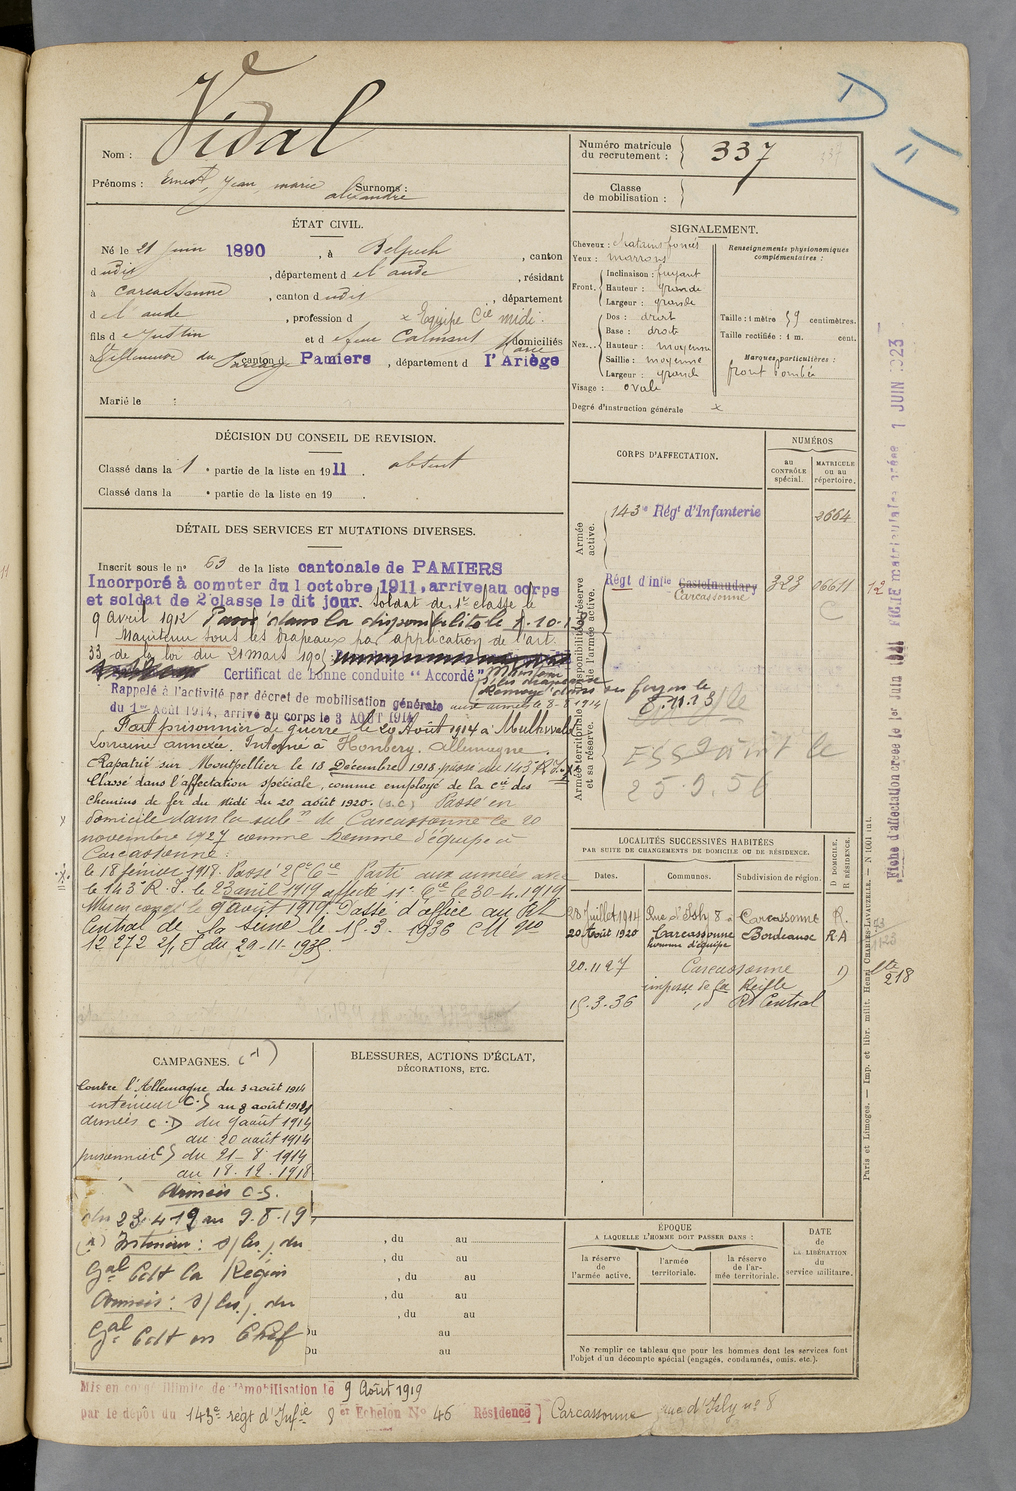 Vidal
Nom :
Prénoms : Ernest, Jean, marie
Surnoms :
alexandre
ÉTAT CIVIL.
Né le 21 Juin 1890, à Belpech, canton
dudit, département de l'aude, résidant
à Carcassonne, canton dudit, département
de l'aude, profession d x Equipe Cie midi.
fils de Justin et de feue Calmant Marie domiciliés
à Villeneuve du Paréage, canton d Pamiers, département d l'Ariège
Marié le :
DÉCISION DU CONSEIL DE REVISION.
Classé dans la 1e partie de la liste en 1911. absent
Classé dans la e partie de la liste en 19 .
DÉTAIL DES SERVICES ET MUTATIONS DIVERSES.
Inscrit sous le no 63 de la liste cantonale de PAMIERS
Incorporé à compter du 1 octobre 1911, arrivé au corps
et soldat de 2e classe le dit jour. Soldat de 1e classe le
9 avril 1912 Passé dans la disponibilité le 1-10-13
Maintenu sous les drapeaux par application de l'art.
33 de la loi du 21 mars 1905
Certificat de bonne conduite "Accordé" Maintenu
s/les drapeaux
Renvoyé dans ses foyers le
8.11.13
Rappelé à l'activité par décret de mobilisation générale
du 1er Août 1914, arrivé au corps le 3 AOUT 1914 aux armées le 8-8-1914
Fait prisonnier de guerre le 20 Août 1914 à Mulhwald
Lorraine annexée. Interné à Honbery. Allemagne.
Rapatrié sur Montpellier le 18 Décembre 1918 passé au 143e R.I.
Classé dans l'affectation spéciale, comme employé de la cie des
Chemins de fer du Midi du 20 août 1920. (S.C.) Passé en
domicile dans la subon de Carcassonne le 20
novembre 1927 comme homme d'équipe à
Carcassonne.
le 18 février 1918. Passé 25e Cie Parti aux armées avec
le 143e R.I. le 23 avril 1919 affecté 11e Cie le 30-4.1919
Mis en congé le 9 août 1919. Passé d'office au Rt
Central de la Seine le 15.3.1936 CM No
12 272 2/1 S du 29-11-1935.
CAMPAGNES. (1)
Contre l'Allemagne du 3 août 1914
intérieur C.S au 8 août 1914
armées C.D du 9 août 1914
au 20 août 1914
prisonnier C.S du 21-8 1914
au 18.12.1918
Armées C.S.
du 23.4.19 au 9.8.19
(1) Intérieur : s/les/. du
Gal Cdt la Région
Armées : s/les/. du
Gal Cdt en Chef
BLESSURES, ACTIONS D'ÉCLAT,
DÉCORATIONS, ETC.
, du au
, du au
, du au
, du au
, du au
Du au
Du au
Mis en congé illimité de démobilisation le 9 Août 1919
par le dépôt du 143e régt d'Infie 8e Echelon No 46 Résidence Carcassonne rue d'Isly no 8
Numéro matricule
du recrutement : 337
Classe
de mobilisation :
SIGNALEMENT.
Cheveux : chatains foncés
Yeux : marrons
Front. Inclinaison : fuyant
Hauteur : grande
Largeur : grande
Nez... Dos : droit
Base : droite
Hauteur : moyenne
Saillie : moyenne
Largeur : grande
Visage : ovale
Degré d'instruction générale x
Renseignements physionomiques
complémentaires :
Taille : 1 mètre 59 centimètres.
Taille rectifiée : 1 m. cent.
Marques particulières :
front bombé
CORPS D'AFFECTATION.
NUMÉROS
au
CONTRÔLE
spécial.
MATRICULE
ou au
répertoire.
Armée
active.
143e Régt d'Infanterie 2664
Disponibilité et réserve
de l'armée active.
Régt d'infie Castelnaudary 323 06611 12
Carcassonne C
Armée territoriale
et sa réserve.
Essaint le
25.9.56
LOCALITÉS SUCCESSIVES HABITÉES
PAR SUITE DE CHANGEMENTS DE DOMICILE OU DE RÉSIDENCE.
Dates. Communes. Subdivision de région. D DOMICILE, R RÉSIDENCE.
28 Juillet 1914 Rue d'Isly 8 à Carcassonne R.
20 Août 1920 Carcassonne Bordeaux R.A
homme d'équipe
20.11 27 Carcassonne D
impasse de la Reille
15.3.36 id Rt Central
Lte
218
ÉPOQUE
A LAQUELLE L'HOMME DOIT PASSER DANS :
la réserve
de
l'armée active.
l'armée
territoriale.
la réserve
de l'ar-
mée territoriale.
DATE
de
LA LIBÉRATION
du
service militaire.
Ne remplir ce tableau que pour les hommes dont les services font
l'objet d'un décompte spécial (engagés, condamnés, omis, etc.).
Paris et Limoges. — Imp. et libr. milit. Henri CHARLES-LAVAUZELLE. — N 1001 int.
Fiche d'affectation créée le 1er Juin 1931